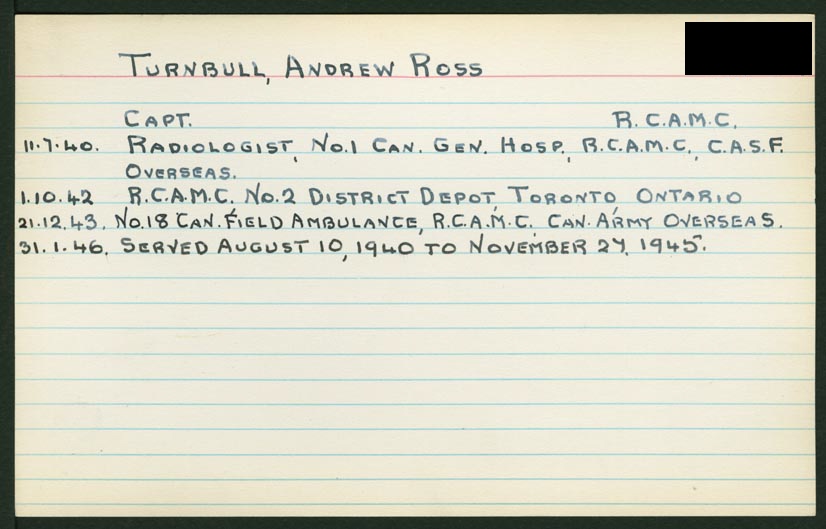 TURNBULL, ANDREW ROSS
CAPT. R.C.A.M.C.
11.7.40. RADIOLOGIST, NO.1 CAN. GEN. HOSP., R.C.A.M.C., C.A.S.F.
OVERSEAS.
1.10.42 R.C.A.M.C. NO.2 DISTRICT DEPOT, TORONTO, ONTARIO
21.12.43. NO.18 CAN. FIELD AMBULANCE, R.C.A.M.C. CAN. ARMY OVERSEAS.
31.1.46. SERVED AUGUST 10, 1940 TO NOVEMBER 27, 1945.